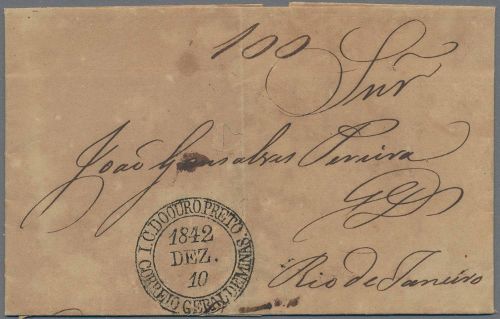 100
Snr̃
João Gonsalves Pereira
Rio de Janeiro
I.C.DO OURO PRETO
CORREIO GERAL DE MINAS
1842
DEZ.
10